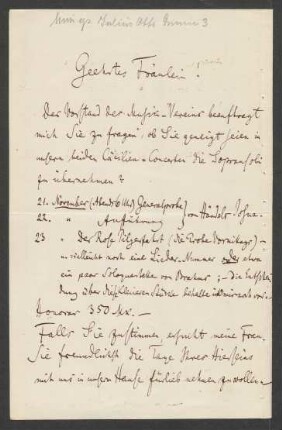 Julius Otto Grimm 3
Geehrtes Fräulein!
Der Vorstand des Musik-Vereins beauftragt
mich Sie zu fragen, ob Sie geneigt seien in
unsern beiden Cäcilien-Concerten die Sopransoli
zu übernehmen?
21. November (Abends 6 Uhr) Generalprobe)
22. " Aufführung } von Händels Josua.
23 " Der Rose Pilgerfahrt (die Probe Vormittags) –
vielleicht noch eine Lieder-Nummer oder etwa
ein paar Soloquartette von Brahms; – die Entschei-
dung über diese kleineren Stücke behalte ich mir noch vor. –
Honorar 350 Mk. –
Falls Sie zustimmen, ersucht meine Frau,
Sie freundlichst die Tage Ihres Hierseins
mit uns in unserm Hause fürlieb nehmen zu wollen –